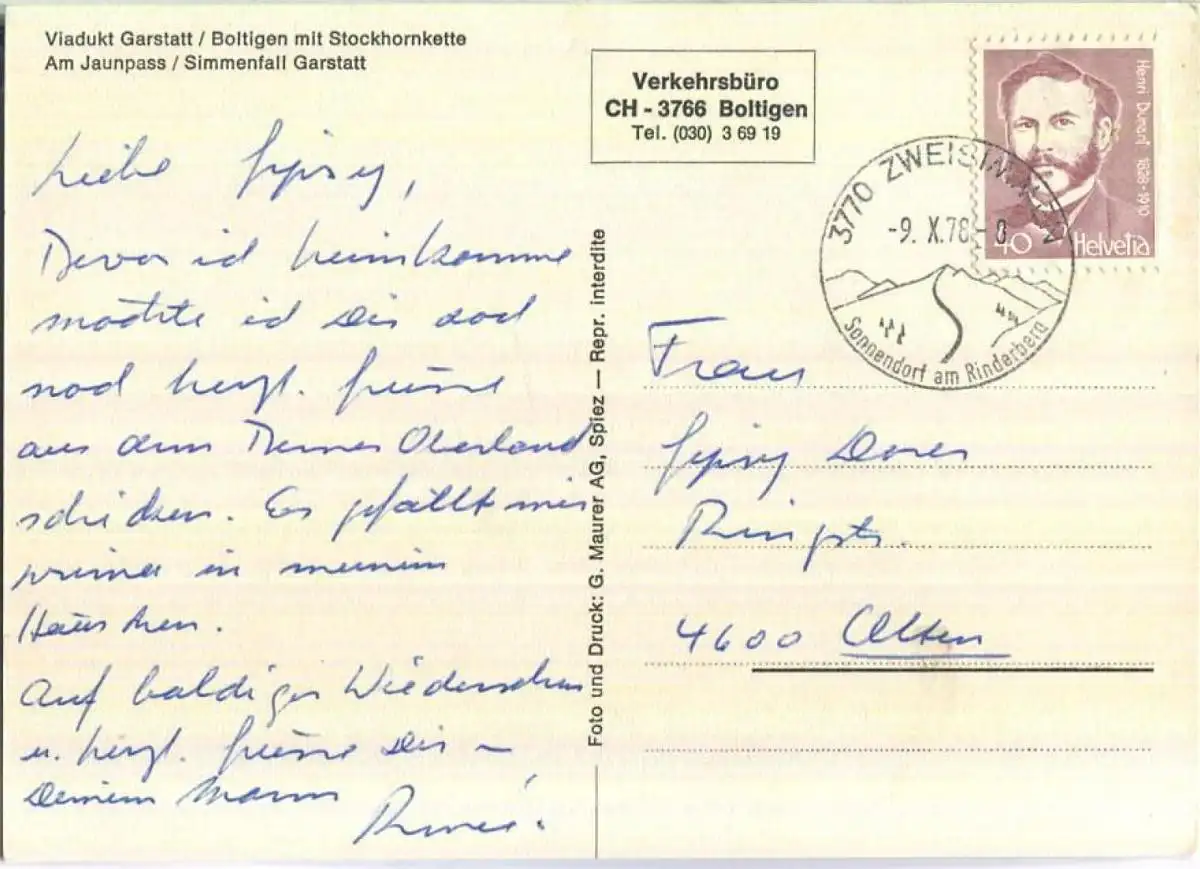 Viadukt Garstatt / Boltigen mit Stockhornkette
Am Jaunpass / Simmenfall Garstatt
Verkehrsbüro
CH - 3766 Boltigen
Tel. (030) 3 69 19
Henri Dunant 1828-1910
40 Helvetia
3770 ZWEISIMMEN
-9. X. 78 - 8
Sonnendorf am Rinderberg
Liebe Gipsy,
Bevor ich heimkomme
möchte ich Dir doch
noch herzl. Grüsse
aus dem Berner Oberland
schicken. Es gefällt mir
prima in meinem
Häuschen.
Auf baldiges Wiedersehen
u. herzl. Grüsse Dir
Deinem Mann
Foto und Druck: G. Maurer AG, Spiez — Repr. interdite
Frau
Gipsy
Ringstr.
4600 Olten